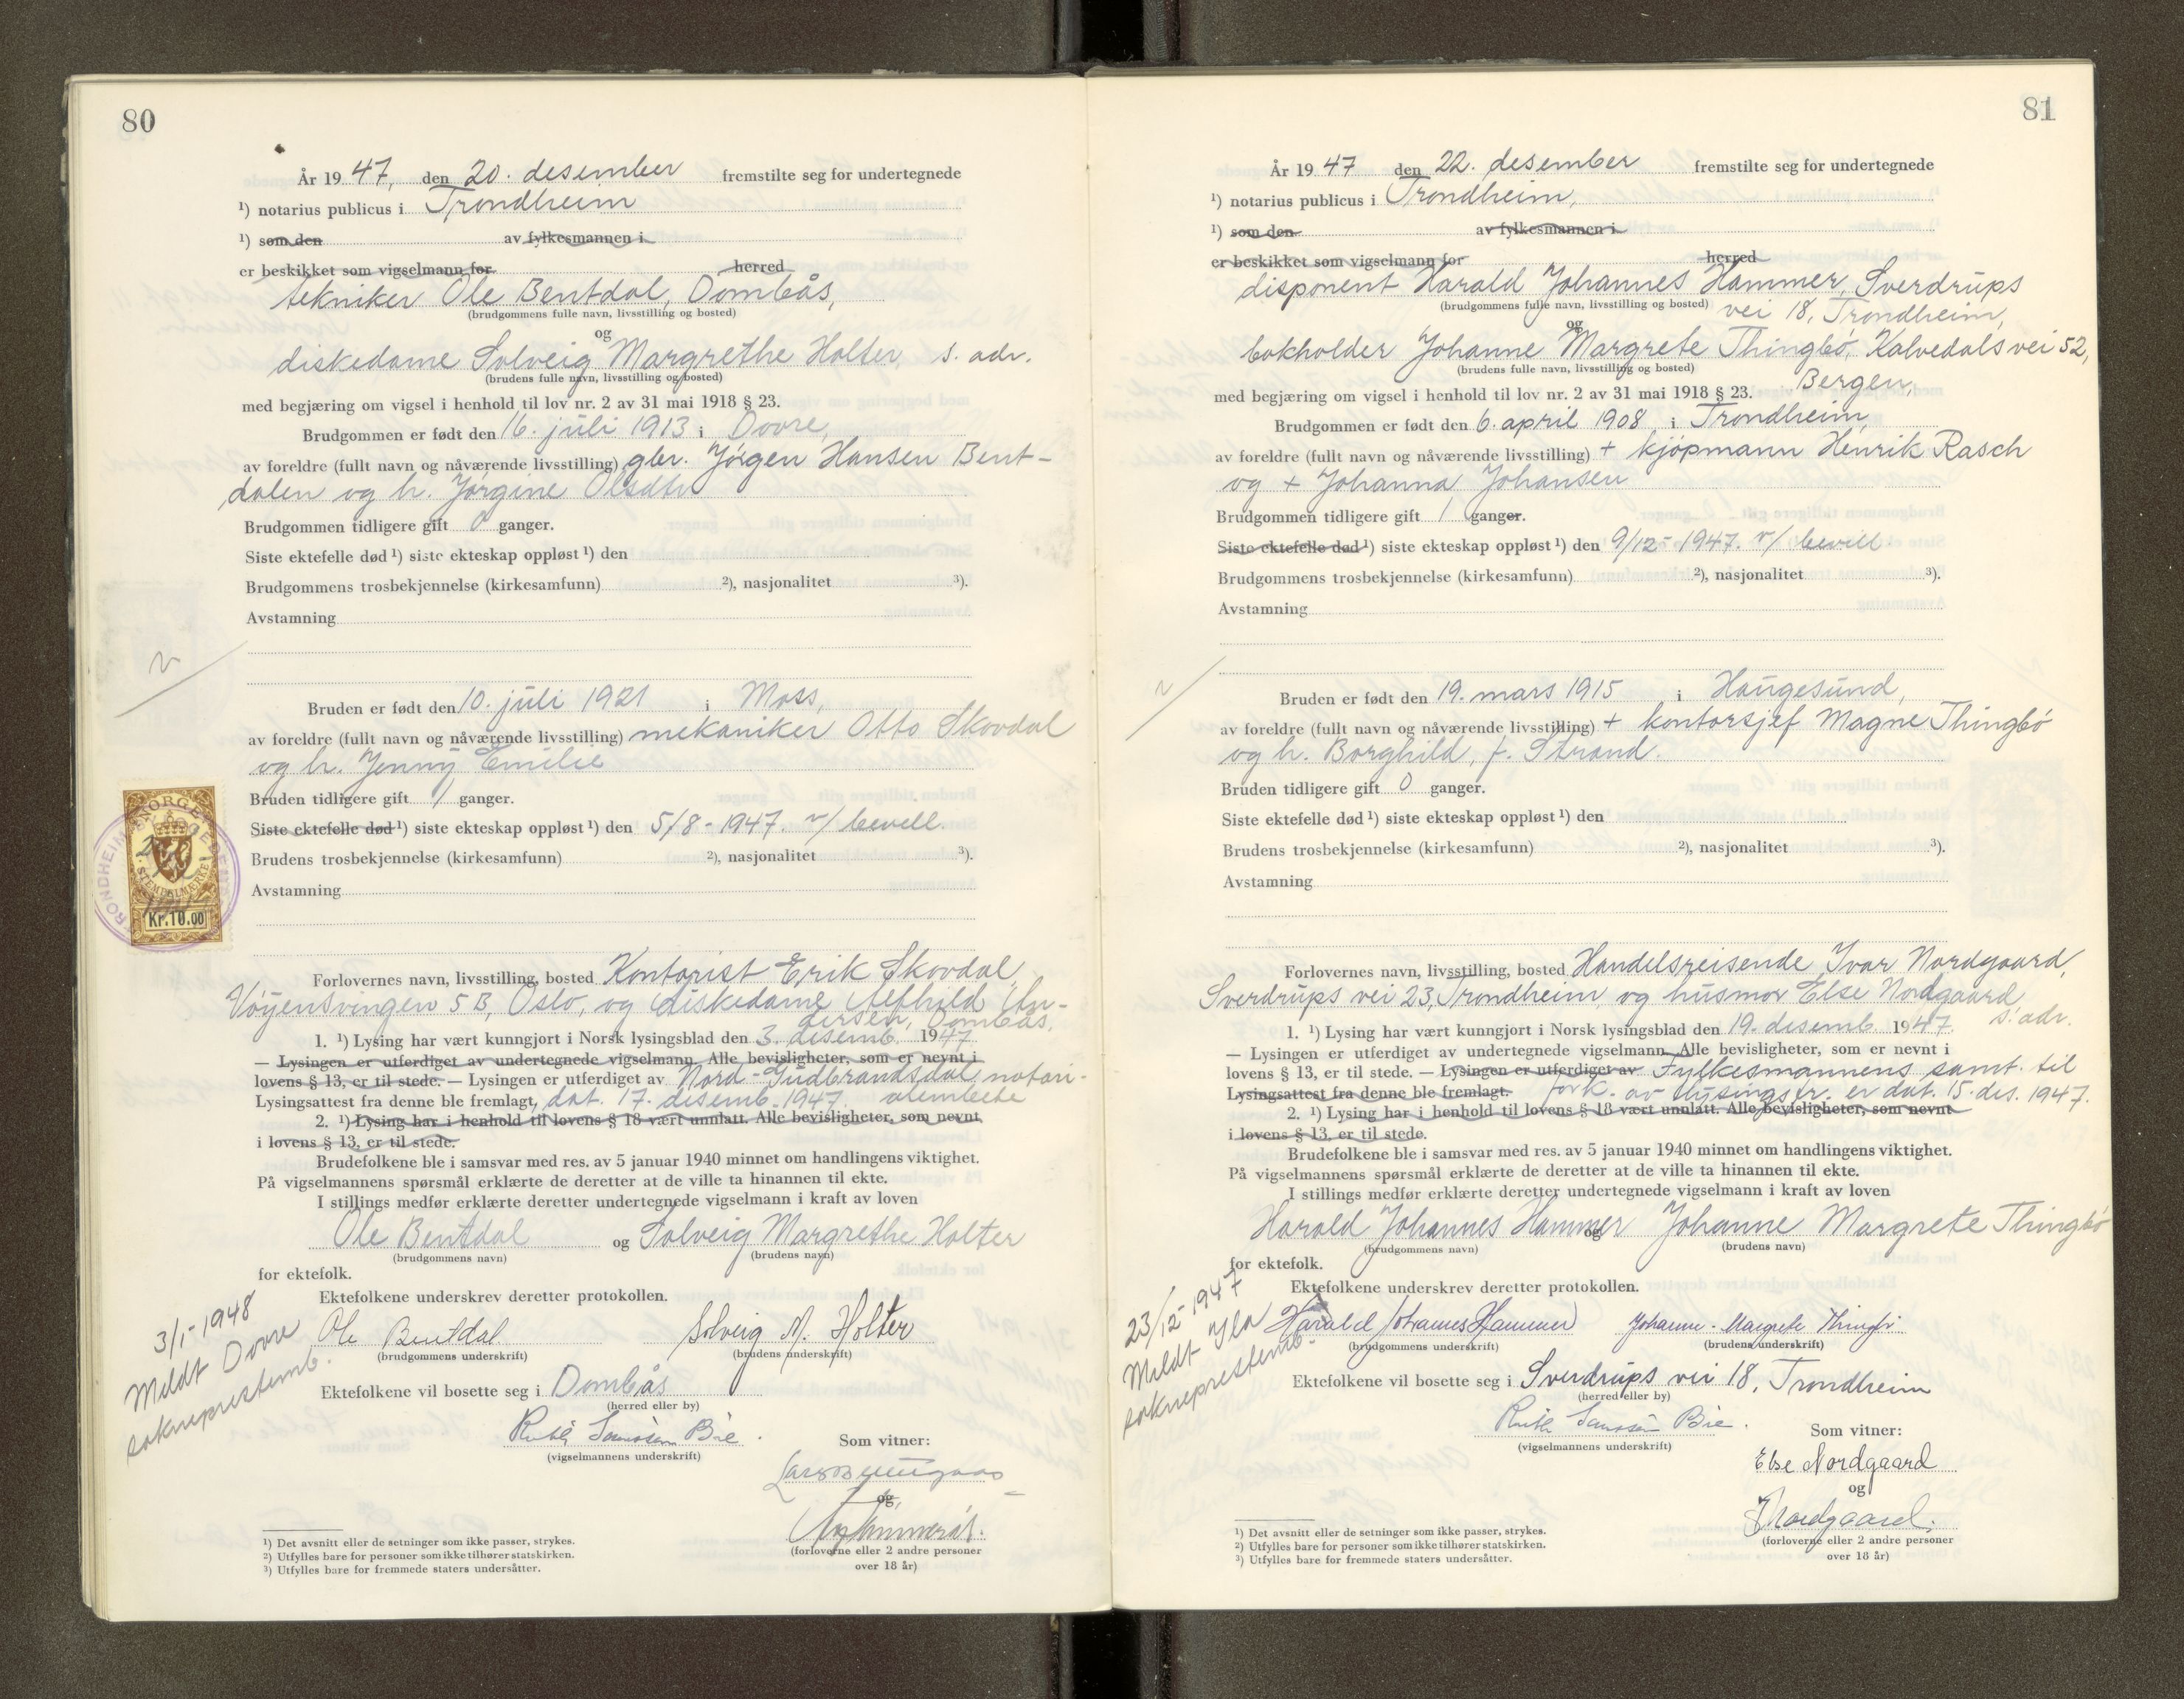 80
År 1947, den 20. desember fremstilte seg for undertegnede
¹) notarius publicus i Trondheim
¹) som den av fylkesmannen i
er beskikket som vigselmann for herred
tekniker Ole Bentdal, Dombås,
(brudgommens fulle navn, livsstilling og bosted)
og
diskedame Solveig Margrethe Holter, s. adr.
(brudens fulle navn, livsstilling og bosted)
med begjæring om vigsel i henhold til lov nr. 2 av 31 mai 1918 § 23.
Brudgommen er født den 16. juli 1913 i Dovre,
av foreldre (fullt navn og nåværende livsstilling) gbr. Jørgen Hansen Bent-
dalen og h. Jørgine Olsdtr
Brudgommen tidligere gift 0 ganger.
Siste ektefelle død ¹) siste ekteskap oppløst ¹) den
Brudgommens trosbekjennelse (kirkesamfunn) ²), nasjonalitet ³).
Avstamning
Bruden er født den 10. juli 1921 i Moss,
av foreldre (fullt navn og nåværende livsstilling) mekaniker Otto Skovdal
og h. Jenny Emilie
Bruden tidligere gift 1 ganger.
Siste ektefelle død ¹) siste ekteskap oppløst ¹) den 5/8-1947. v/ bevill.
Brudens trosbekjennelse (kirkesamfunn) ²), nasjonalitet ³).
Avstamning
NORGE
STEMPELMERKE
Kr. 10.00
Forlovernes navn, livsstilling, bosted Kontorist Erik Skovdal,
Vøyensvingen 5 B, Oslo, og diskedame Alfhild An-
dersen, Dombås.
1. ¹) Lysing har vært kunngjort i Norsk lysingsblad den 3. desemb. 1947
— Lysingen er utferdiget av undertegnede vigselmann. Alle bevisligheter, som er nevnt i
lovens § 13, er til stede. — Lysingen er utferdiget av Nord-Gudbrandsdal notari-
Lysingsattest fra denne ble fremlagt, dat. 17. desemb. 1947. alembete
2. ¹) Lysing har i henhold til lovens § 18 vært unnlatt. Alle bevisligheter, som nevnt
i lovens § 13, er til stede.
Brudefolkene ble i samsvar med res. av 5 januar 1940 minnet om handlingens viktighet.
På vigselmannens spørsmål erklærte de deretter at de ville ta hinannen til ekte.
I stillings medfør erklærte deretter undertegnede vigselmann i kraft av loven
Ole Bentdal og Solveig Margrethe Holter
(brudgommens navn) (brudens navn)
for ektefolk.
Ektefolkene underskrev deretter protokollen.
3/1-1948
Meldt Dovre
sokneprestemb.
Ole Bentdal Solveig M. Holter
(brudgommens underskrift) (brudens underskrift)
Ektefolkene vil bosette seg i Dombås
(herred eller by)
Ruth Sørnssen Bie.
(vigselmannens underskrift)
Som vitner:
og
(forloverne eller 2 andre personer
over 18 år)
¹) Det avsnitt eller de setninger som ikke passer, strykes.
²) Utfylles bare for personer som ikke tilhører statskirken.
³) Utfylles bare for fremmede staters undersåtter.
81
År 1947 den 22. desember fremstilte seg for undertegnede
¹) notarius publicus i Trondheim,
¹) som den av fylkesmannen i
er beskikket som vigselmann for herred
disponent Harald Johannes Hammer, Sverdrups
(brudgommens fulle navn, livsstilling og bosted) vei 18, Trondheim,
og
bokholder Johanne Margrete Thingbø, Kalvedalsvei 52,
(brudens fulle navn, livsstilling og bosted) Bergen,
med begjæring om vigsel i henhold til lov nr. 2 av 31 mai 1918 § 23.
Brudgommen er født den 6. april 1908 i Trondheim,
av foreldre (fullt navn og nåværende livsstilling) + kjøpmann Henrik Rasch
og + Johanna Johansen
Brudgommen tidligere gift 1 ganger.
Siste ektefelle død ¹) siste ekteskap oppløst ¹) den 9/12-1947. v/ bevill.
Brudgommens trosbekjennelse (kirkesamfunn) ²), nasjonalitet ³).
Avstamning
Bruden er født den 19. mars 1915 i Haugesund,
av foreldre (fullt navn og nåværende livsstilling) + kontorsjef Magne Thingbø
og h. Borghild, f. Strand.
Bruden tidligere gift 0 ganger.
Siste ektefelle død ¹) siste ekteskap oppløst ¹) den
Brudens trosbekjennelse (kirkesamfunn) ²), nasjonalitet ³).
Avstamning
Forlovernes navn, livsstilling, bosted Handelsreisende Ivar Nordgaard,
Sverdrups vei 23, Trondheim og husmor Else Nordgaard
s. adr.
1. ¹) Lysing har vært kunngjort i Norsk lysingsblad den 19. desemb. 1947.
— Lysingen er utferdiget av undertegnede vigselmann. Alle bevisligheter, som er nevnt i
lovens § 13, er til stede. — Lysingen er utferdiget av Fylkesmannens samt. til
Lysingsattest fra denne ble fremlagt. fork. av lysingsfr. er dat. 15. des. 1947.
2. ¹) Lysing har i henhold til lovens § 18 vært unnlatt. Alle bevisligheter, som nevnt
i lovens § 13, er til stede.
Brudefolkene ble i samsvar med res. av 5 januar 1940 minnet om handlingens viktighet.
På vigselmannens spørsmål erklærte de deretter at de ville ta hinannen til ekte.
I stillings medfør erklærte deretter undertegnede vigselmann i kraft av loven
Harald Johannes Hammer og Johanne Margrete Thingbø
(brudgommens navn) (brudens navn)
for ektefolk.
Ektefolkene underskrev deretter protokollen.
23/12-1947
Meldt Ila
sokneprestemb.
Harald Johannes Hammer Johanne Margrete Thingbø
(brudgommens underskrift) (brudens underskrift)
Ektefolkene vil bosette seg i Sverdrups vei 18, Trondheim
(herred eller by)
Ruth Sørnssen Bie.
(vigselmannens underskrift)
Som vitner:
Else Nordgaard
og
I Nordgaard.
(forloverne eller 2 andre personer
over 18 år)
¹) Det avsnitt eller de setninger som ikke passer, strykes.
²) Utfylles bare for personer som ikke tilhører statskirken.
³) Utfylles bare for fremmede staters undersåtter.